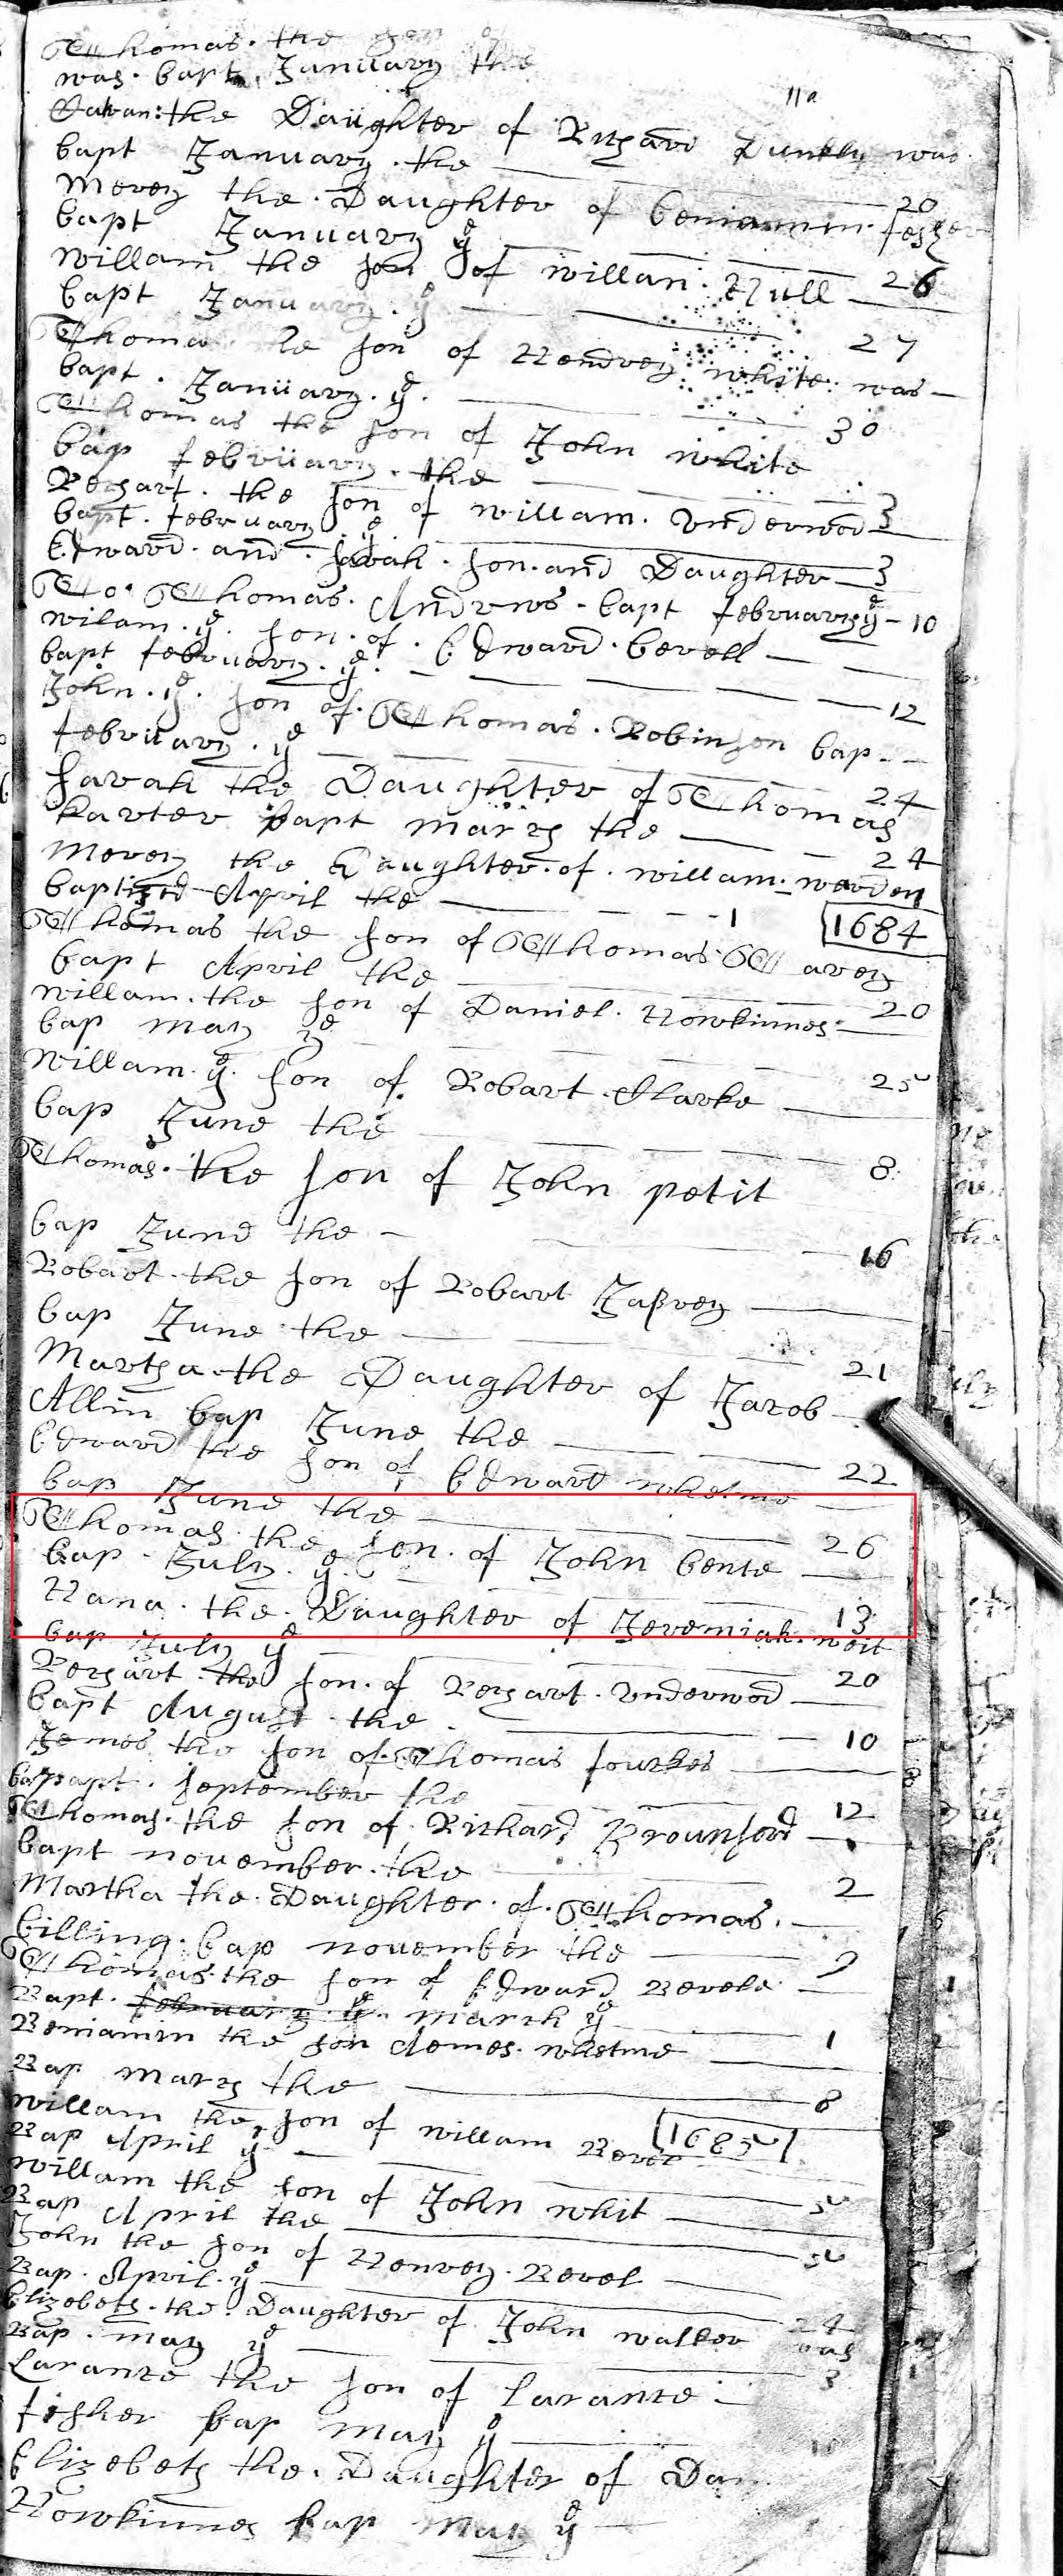 Thomas. the son of
was. bapt. January the
11a
the Daughter of Richard Dunkly was
bapt January. the 20
Merey the. Daughter of beniammin. fesher
bapt January ye 26
Willam the son of willan: Hull
bapt January. ye 27
Thomas he son of Hendrey white was
bapt. January. ye. 30
Thomas the son of John white
bap february. the 3
Rechart. the son of willam. Underwod
bapt. february ye 3
Edward. and. sarah. son. and Daughter
To. Thomas. Andrws. bapt february ye 10
wilam. ye. son. of. Edward. bevell
bapt february. ye. 12
John. ye. son of. Thomas. Robinson bap
february. ye 24
sarah the Daughter of Thomas
karter bapt march the 24
Merey the Daughter. of. willam. warden
baptized April the 1 1684
Thomas the son of Thomas. Tavey
bapt April the 20
Willam. the son of Daniel. Howkinnes
bap May ye 25
Willam. ye. son of. Robart. Clarke
bap June the 8
Thomas. the son of John petit
bap June the 16
Robart. the son of Robart Jarvey
bap June the 21
Martha. the Daughter of Jacob
Allin bap June the 22
Edward the son of Edward whetme
bap June the 26
Thomas. the son. of John bente
bap. July. ye. 13
Hana. the. Daughter of Jeremiah. weit
bap July ye 20
Rechart. the son. of Rechart. Underwod
bapt August. the 10
Jemes the son of. Thomas fowkes
bapt. september the 12
Thomas. the son of. Richard Brounsord
bapt november. the 2
Martha the. Daughter. of. Thomas.
billing. bap november the 9
Thomas. the son of Edward Bevele
Bapt. february. ye. march ye 1
Beniamin the son Jemes. whetme
Bap march the 8
willam the son of willam Bevel 1685
Bap April ye 5
willam the son of John whit
Bap April the 5
John the son of Henrey. Bevel
Bap. April. ye 24
Elizebeth. the. Daughter of John walker was
Bap. may ye 3
Larance the son of Larance
fesher bap may ye
Elizebeth the. Daughter of Dan
Howkinnes bap May ye